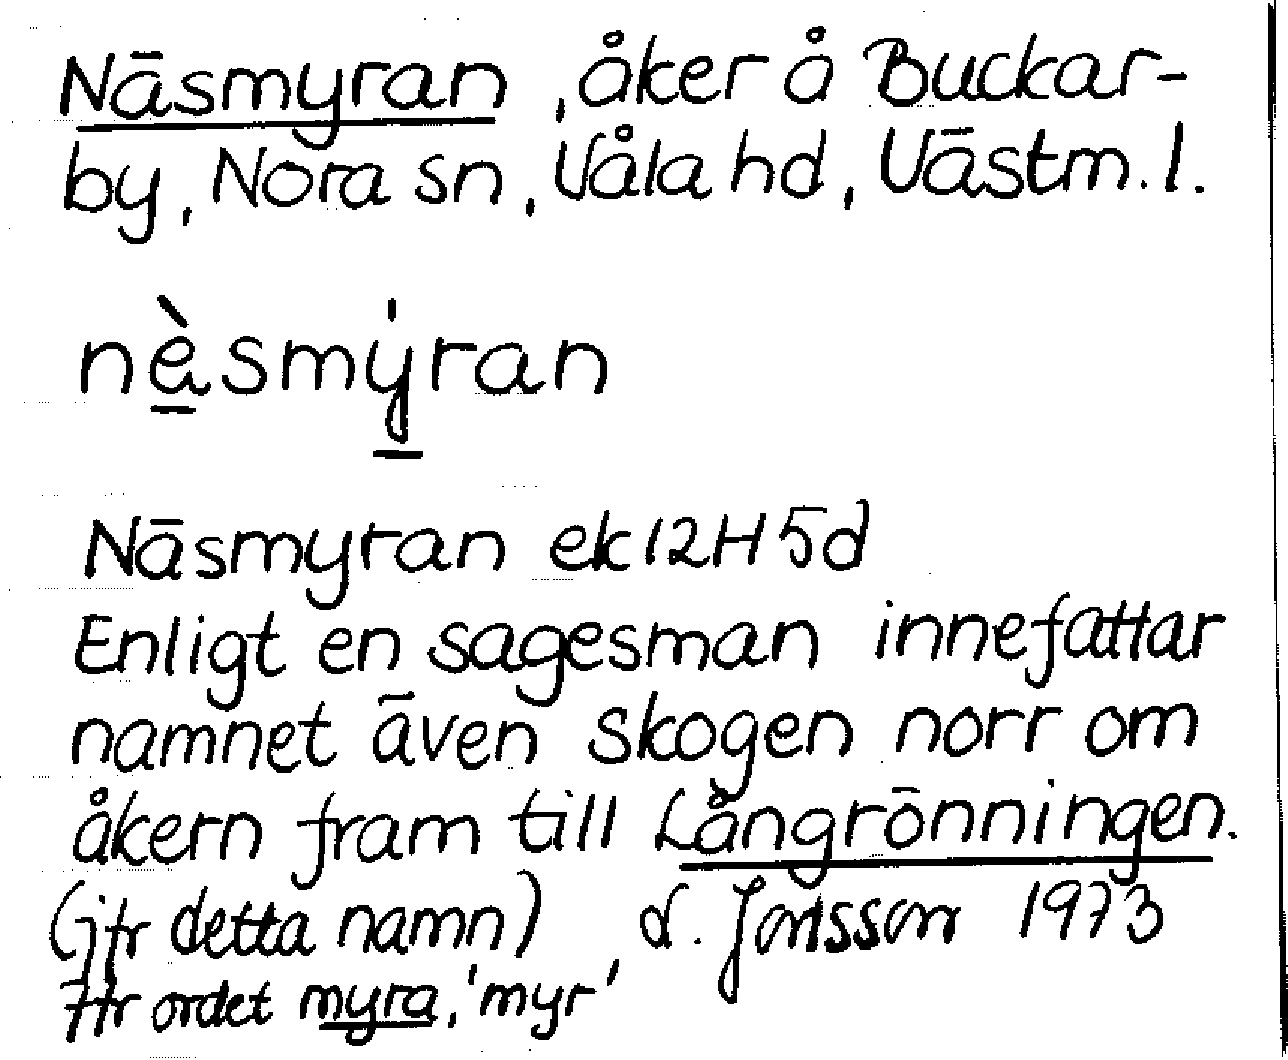 Näsmyran, åker å Buckar-
by, Nora sn, Våla hd, Västm. l.
nè̱smy̱̍ran
Näsmyran ek 12H 5d
Enligt en sagesman innefattar
namnet även skogen norr om
åkern fram till Långrönningen.
(jfr detta namn) d. Jonsson 1973
Jfr ordet myra, 'myr'